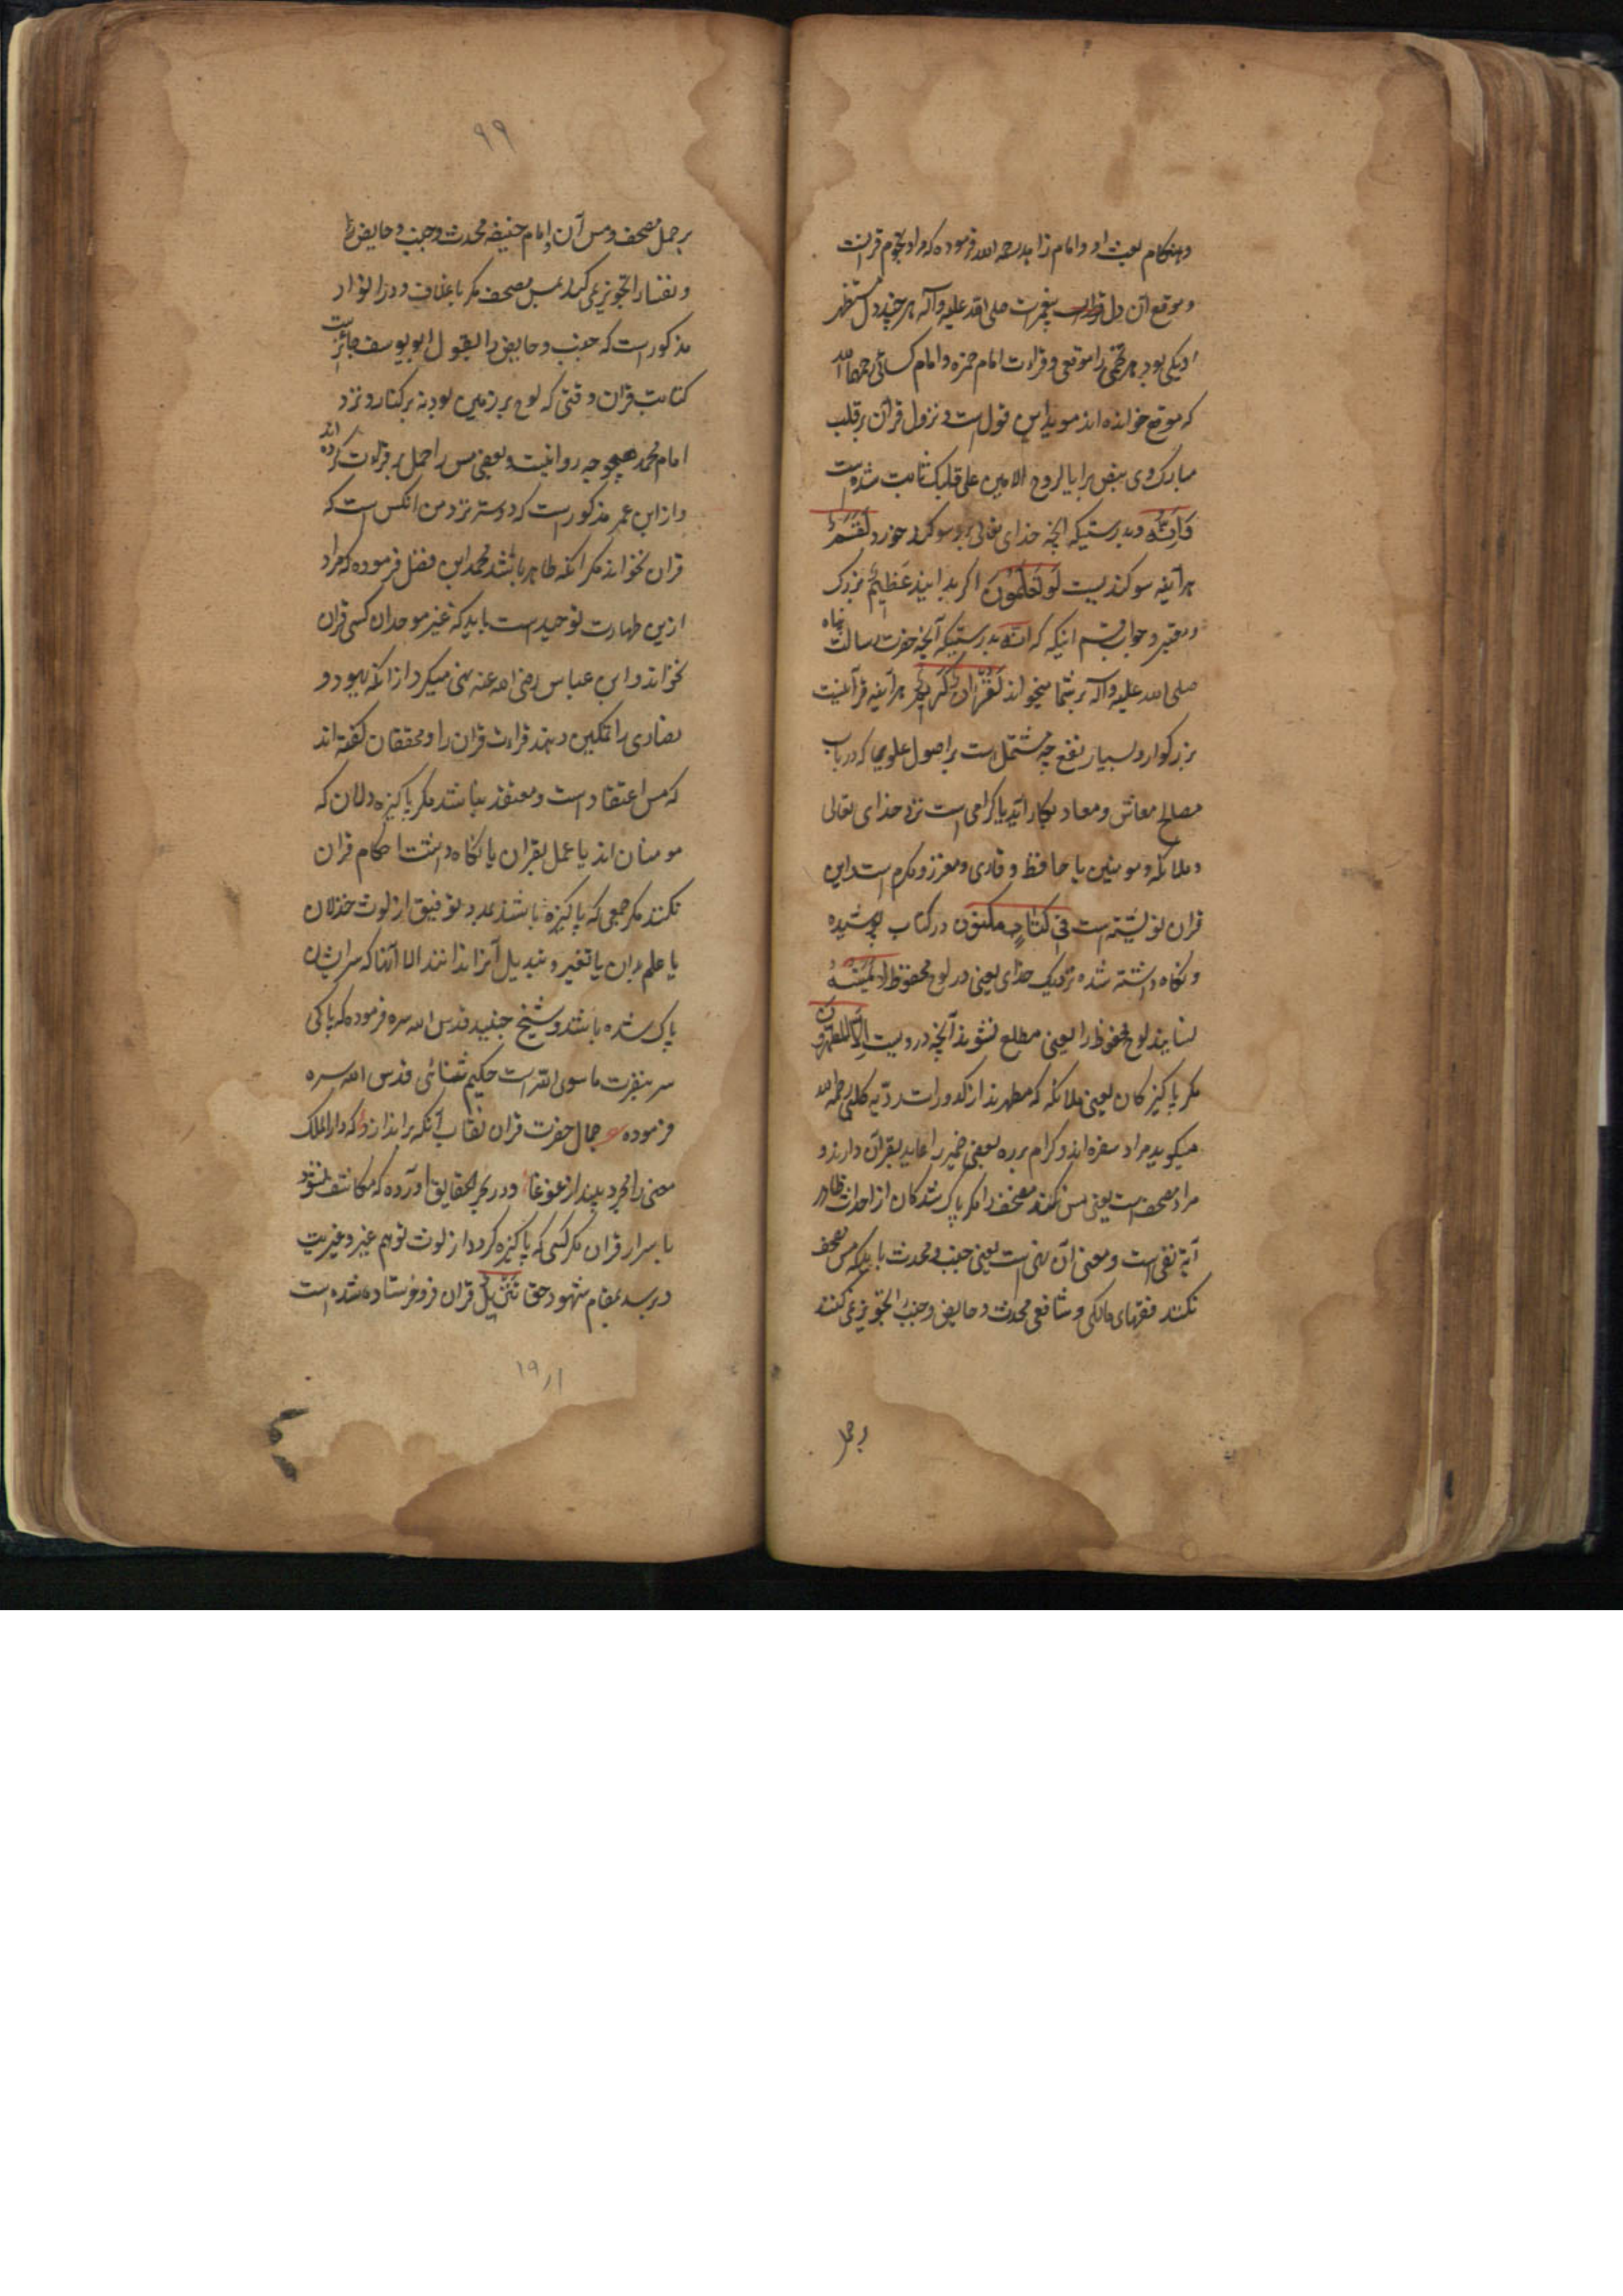 وهنکام بعث او و امام زاهد رحمه الله فرموده که مراد نجوم قرانست
و موقع آن دل پیغمبرست صلی الله علیه وآله هر چند دل مطهر
او یکی بود هر نجمی را موقعی و قراءت امام حمزه و امام کسائی رحمهما الله
که موقع خوانده اند موید این قول است و نزول قرآن بر قلب
مبارک وی بنص نزل به الروح الامین علی قلبک ثابت شده است
وَاِنَّهُ و بدرستیکه آنچه خدای تعالی بدو سوکند خورد لَقَسَمٌ
هر آینه سوکندیست لَوْ تَعْلَمُونَ اکر بدانید عَظِیمٌ بزرک
و معتبر و جواب قسم اینکه که اِنَّهُ بدرستیکه آنچه حضرت رسالت پناه
صلی الله علیه وآله بر شما میخواند لَقُرْآنٌ کَرِیمٌ هر آینه قرآنیست
بزرکوار و بسیار نفع چه مشتمل است بر اصول علومی که در باب
مصالح معاش و معاد بکار آید یا کرامی است نزد خدای تعالی
و ملائکه و مومنین یا حافظ و قاری و معزز و مکرم است و این
قران نوشته است فِی کِتَابٍ مَکْنُونٍ در کتاب پوشیده
و نکاه داشته شده نزدیک خدای یعنی در لوح محفوظ لا یَمَسُّهُ
نسایند لوح محفوظ را یعنی مطلع نشوند آنچه دروست اِلَّا الْمُطَهَّرُونَ
مکر پاکیزکان یعنی ملائکه که مطهرند از کدورات ردیه کلبی رحمه الله
میکوید مراد سفره اند و کرام برره بعضی ضمیر را عاید بقرآن دارند و
مراد مصحف است یعنی مس نکنند مصحف را مکر پاک شدکان از احداث ظاهر
آیة نفی است و معنی آن نهی است یعنی جنب و محدث باید که مس مصحف
نکنند فقهای مالکی و شافعی محدث و حایض و جنب را تجویز نمی کنند
بر حمل
۹۹
بر حمل مصحف و مس آن و امام حنیفه محدث و جنب و حایض را
و نفسا را تجویز نمی کند بمس مصحف مکر با غلاف و در انوار
مذکور است که جنب و حایض را بقول ابو یوسف جائز است
کتابت قران وقتی که لوح بر زمین بود نه بر کنار و نزد
امام محمد هیچ وجه روا نیست و بعضی مس را حمل بر قراءت کرده اند
و از ابن عمر مذکور است که دوستر نزد من آنکس است که
قران نخواند مکر آنکه طاهر باشد محمد ابن فضل فرموده که مراد
ازین طهارت توحید است باید که غیر موحدان کسی قران
نخواند و ابن عباس رضی الله عنه نهی میکرد از آنکه یهود و
نصاری را تمکین دهند قراءت قران را و محققان کفته اند
که مس اعتقاد است و معتقد نباشند مکر پاکیزه دلان که
مومنان اند یا عمل بقران یا نکاه داشت احکام قران
نکنند مکر جمعی که پاکیزه باشند بمدد توفیق از لوث خذلان
یا علم بدان یا تغیر و تبدیل آنرا ندانند الا آنها که سر ایشان
پاک شده باشد و شیخ جنید قدس الله سره فرموده که پاکی
سر بنفرت ما سوی الله است حکیم ثنائی قدس الله سره
فرموده جمال حضرت قران نقاب آنکه براندازد که دار الملک
معنی را مجرد بیند از غوغا و در بحر الحقایق آورده که مکاشف نشود
باسرار قران مکر کسی که پاکیزه کردد از لوث توهم غیر و غیریت
و برسد بمقام شهود حق تَنْزِیلٌ قران فروفرستاده شده است